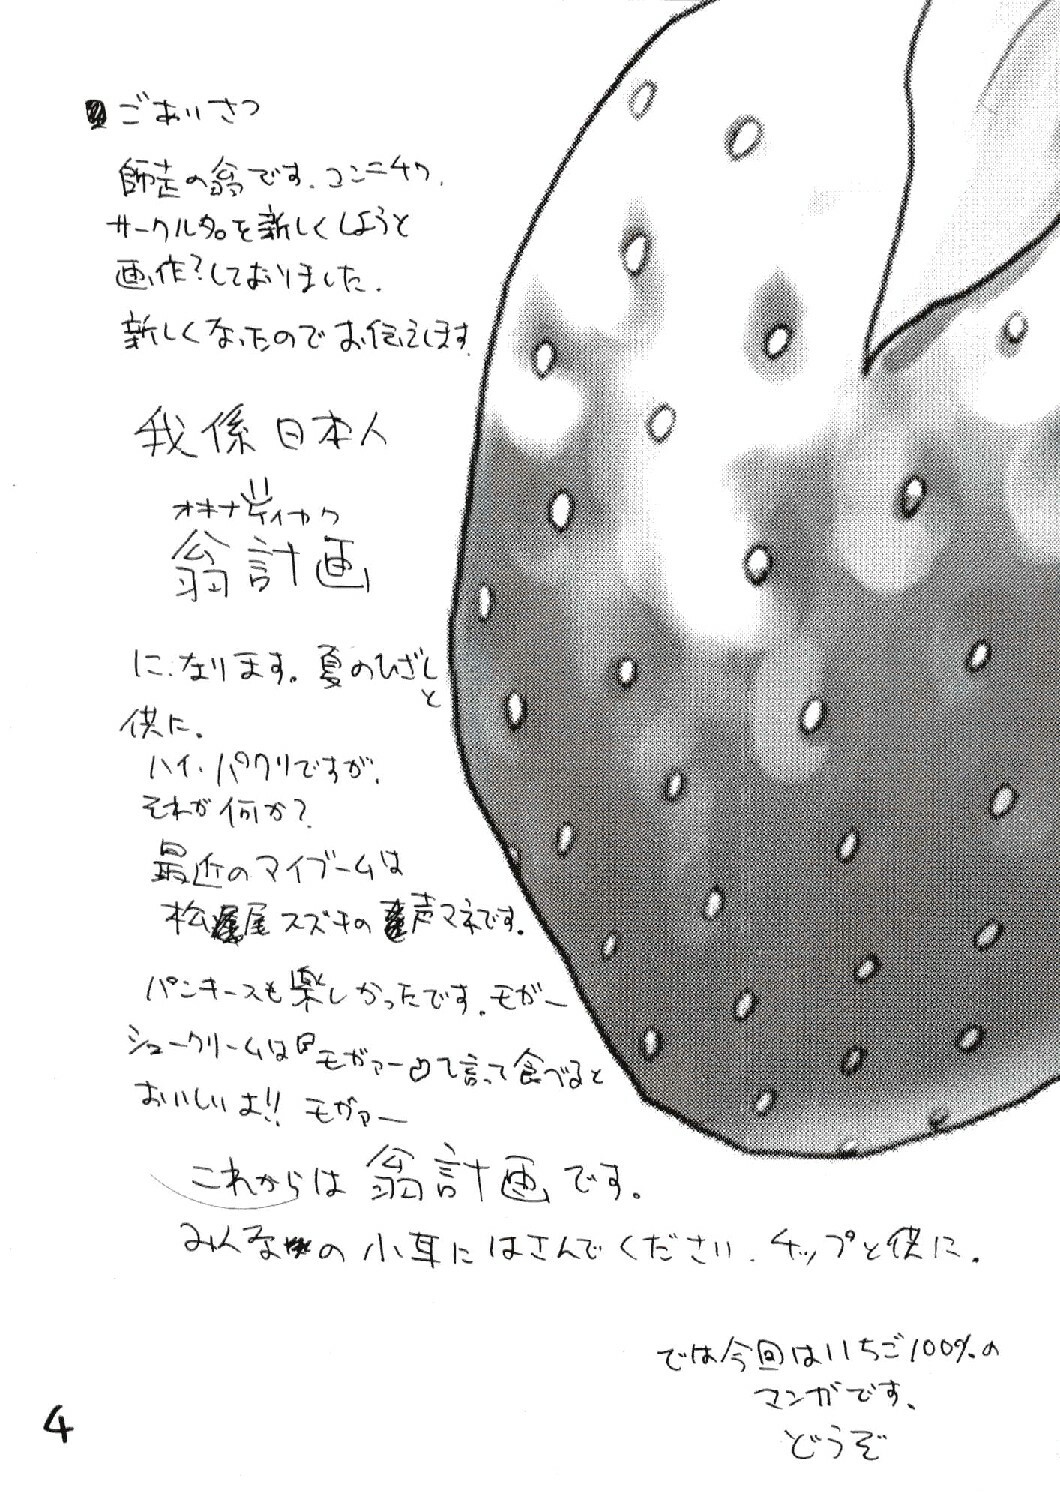 ごあいさつ
師走の翁です。コンニチワ.
サークル名を新しくしようと
画作?しておりました.
新しくなったのでお伝えします
我係日本人
=
オキナケイカク
翁計画
になります。夏のひざしと
供に.
ハイ.パクリですが.
それが何か?
最近のマイブームは
松尾スズキの声マネです.
パンキースも楽しかったです.モガー
シュークリームは『モガァー』て言って食べると
おいしいよ!!モガァー
これからは翁計画です。
みんなの小耳にはさんでください.チップと供に.
では今回はいちご100%の
マンガです.
どうぞ
4